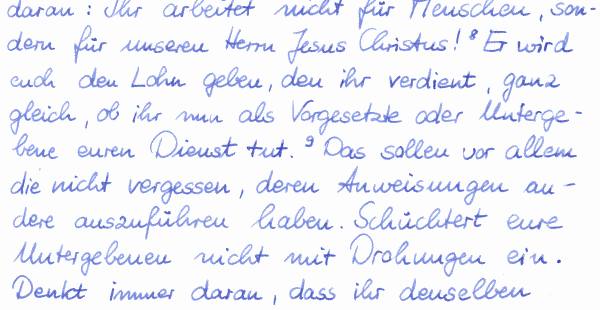 daran: Ihr arbeitet nicht für Menschen, son-
dern für unseren Herrn Jesus Christus! ⁸ Er wird
euch den Lohn geben, den ihr verdient, ganz
gleich, ob ihr nun als Vorgesetzte oder Unterge-
bene euren Dienst tut. ⁹ Das sollen vor allem
die nicht vergessen, deren Anweisungen an-
dere auszuführen haben. Schüchtert eure
Untergebenen nicht mit Drohungen ein.
Denkt immer daran, dass ihr denselben